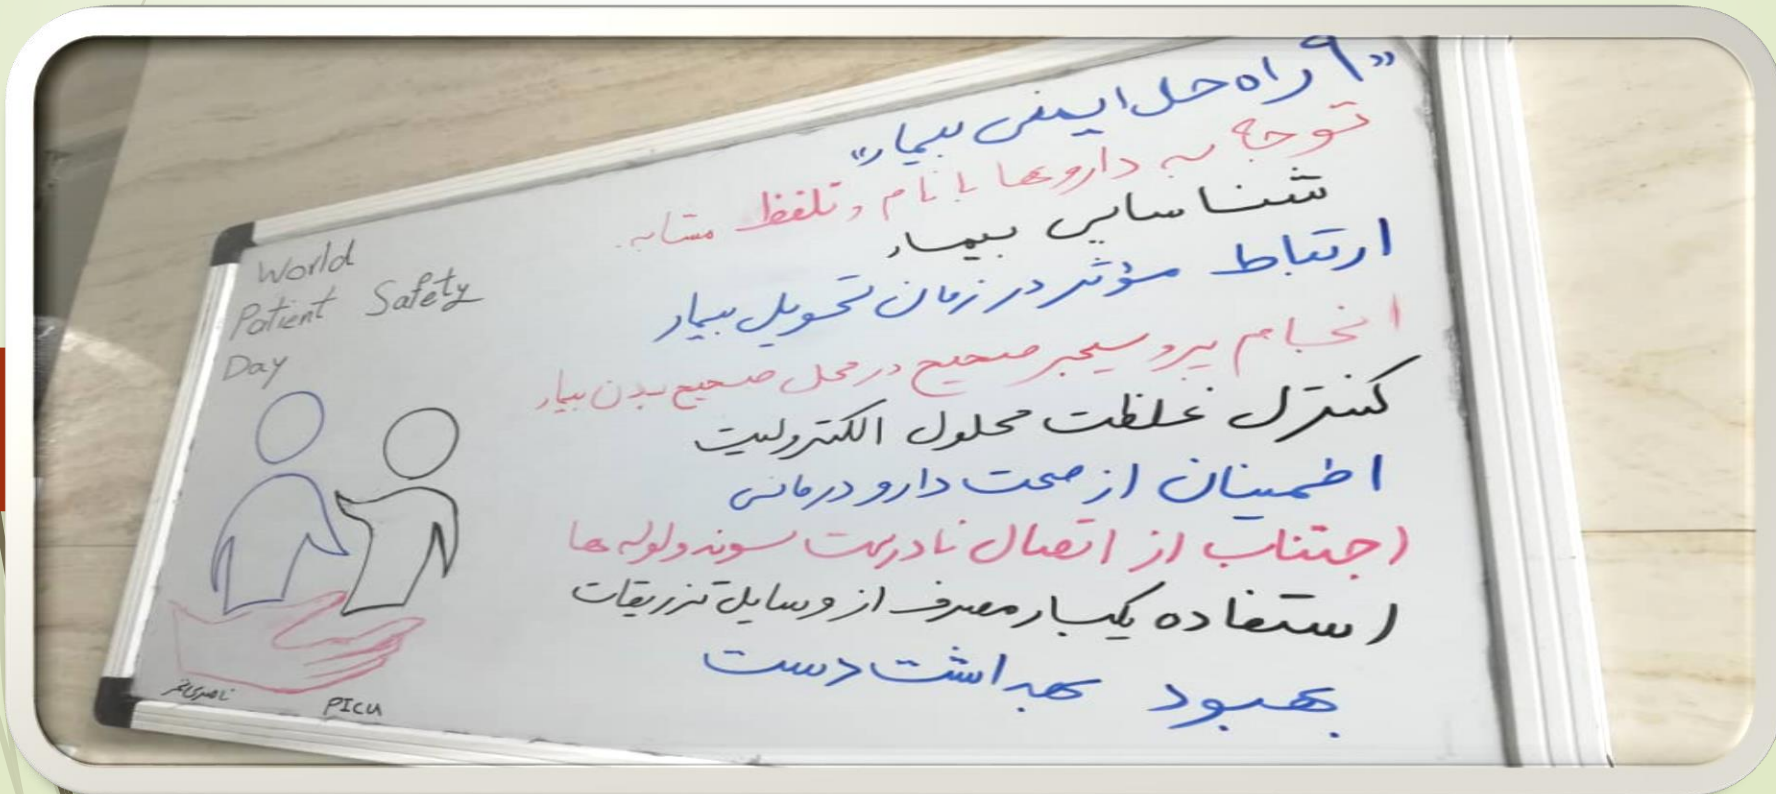 «۹ راه حل ایمنی بیمار»
توجه به داروها با نام و تلفظ مشابه.
شناسایی بیمار
ارتباط مؤثر در زمان تحویل بیمار
انجام پروسیجر صحیح در محل صحیح بدن بیمار
کنترل غلظت محلول الکترولیت
اطمینان از صحت دارو درمانی
اجتناب از اتصال نادرست سوند و لوله ها
استفاده یکبار مصرف از وسایل تزریقات
بهبود بهداشت دست
World
Patient Safety
Day
PICU